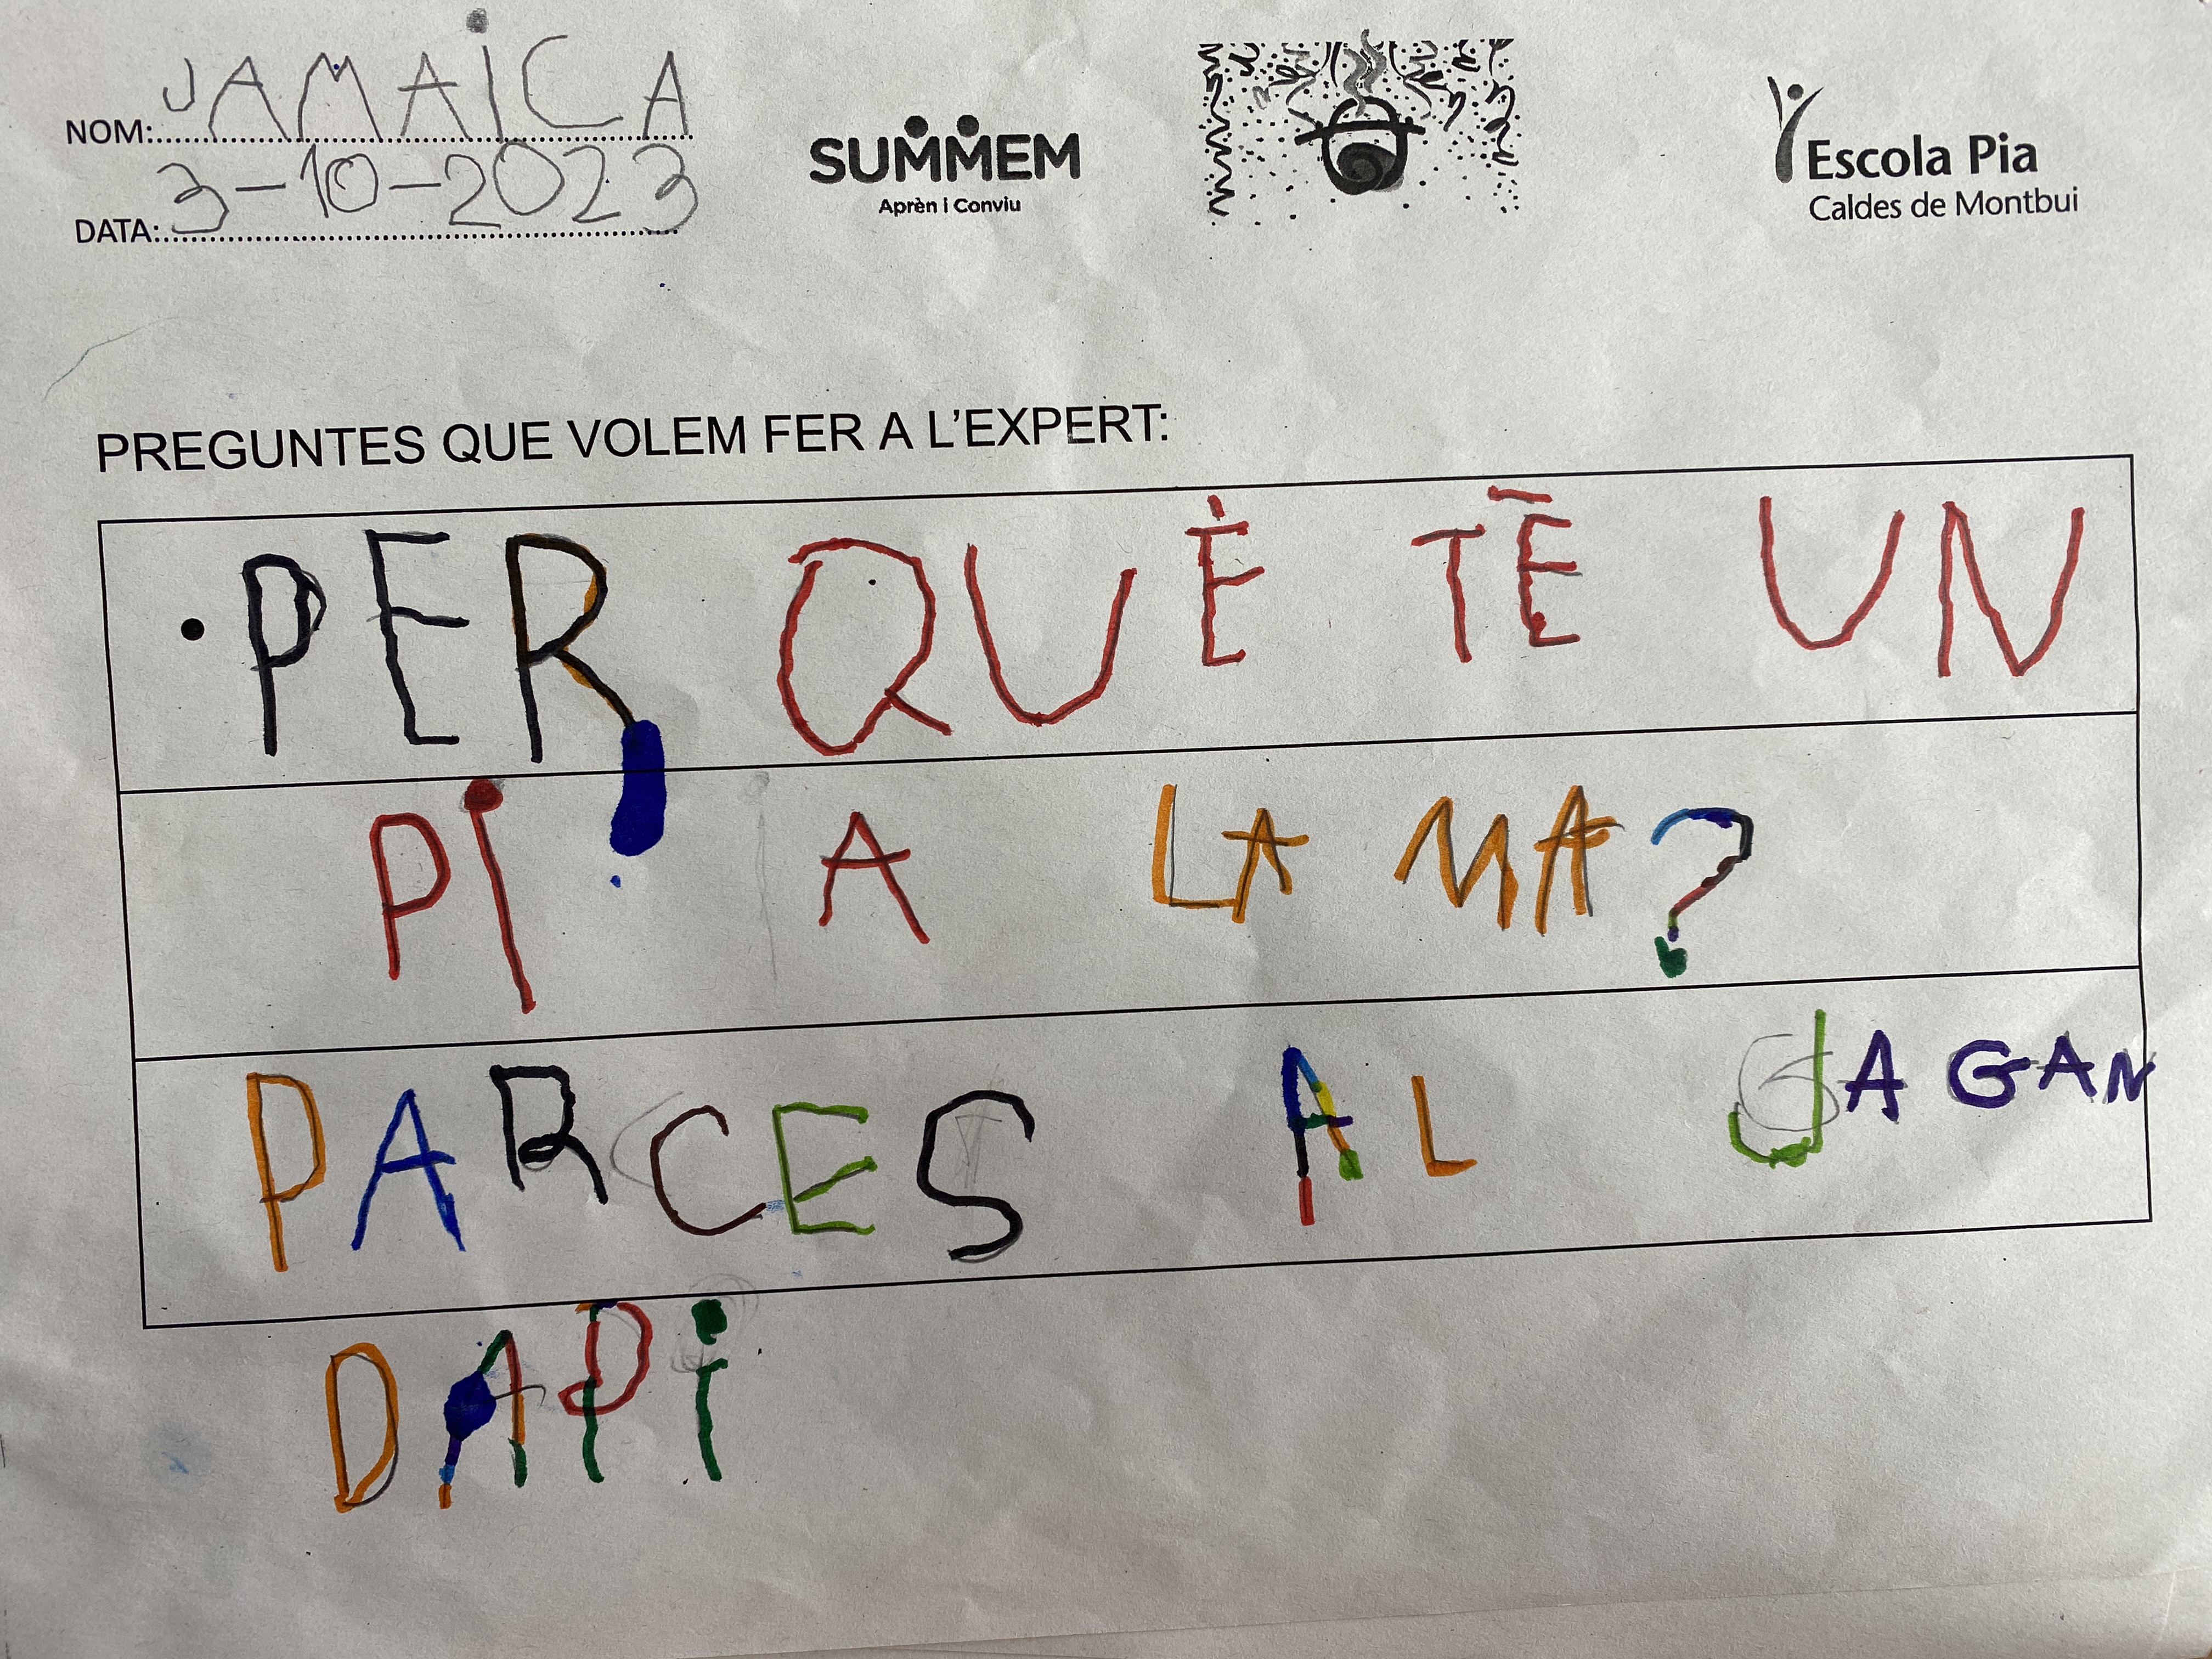 NOM: JAMAICA
DATA: 3-10-2023
SUMMEM
Aprèn i Conviu
Escola Pia
Caldes de Montbui
PREGUNTES QUE VOLEM FER A L'EXPERT:
• PER QUÈ TĒ UN
PI A LA MA?
PARCES AL JAGAN
DAPI